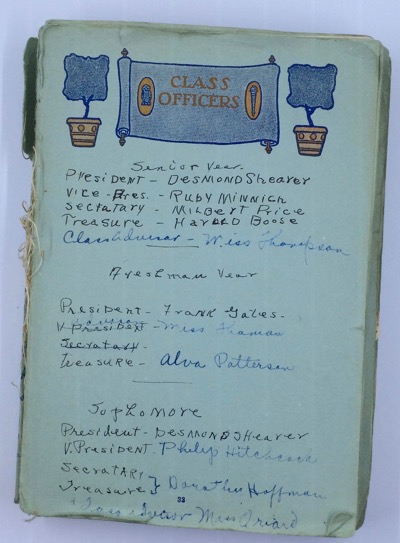 CLASS
OFFICERS
Senior Year.
President - Desmond Shearer
Vice-Pres. - Ruby Minnich
Sectatary - Milbert Price
Treasure - Harold Boose
Class Advisor - Miss Thompson
Freshman Year
President - Frank Gates.
V President - Miss Thomas
Secratary -
Treasure - Alva Patterson
Sophomore
President - Desmond Shearer
V. President. Philip Hitchcock
Secratary
Treasure } Dorothy Hoffman
33
Class Advisor Miss